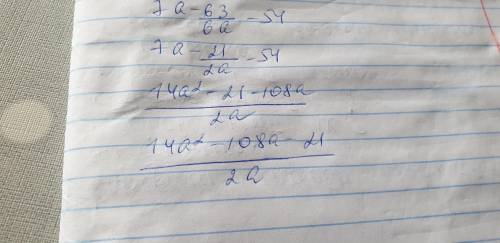 7a - 63/6a - 54
7a - 21/2a - 54
14a² - 21 - 108a / 2a
14a² - 108a - 21 / 2a